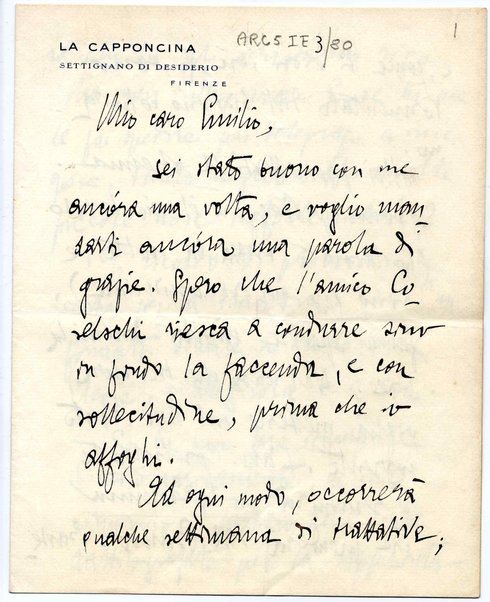 LA CAPPONCINA
SETTIGNANO DI DESIDERIO
FIRENZE
ARC5 IE 3/80
1
Mio caro Emilio,
sei stato buono con me
ancóra una volta, e voglio man-
darti ancóra una parola di
grazie. Spero che l'amico Co-
selschi riesca a condurre sino
in fondo la faccenda, e con
sollecitudine, prima che io
affoghi.
Ad ogni modo, occorrerà
qualche settimana di trattative;